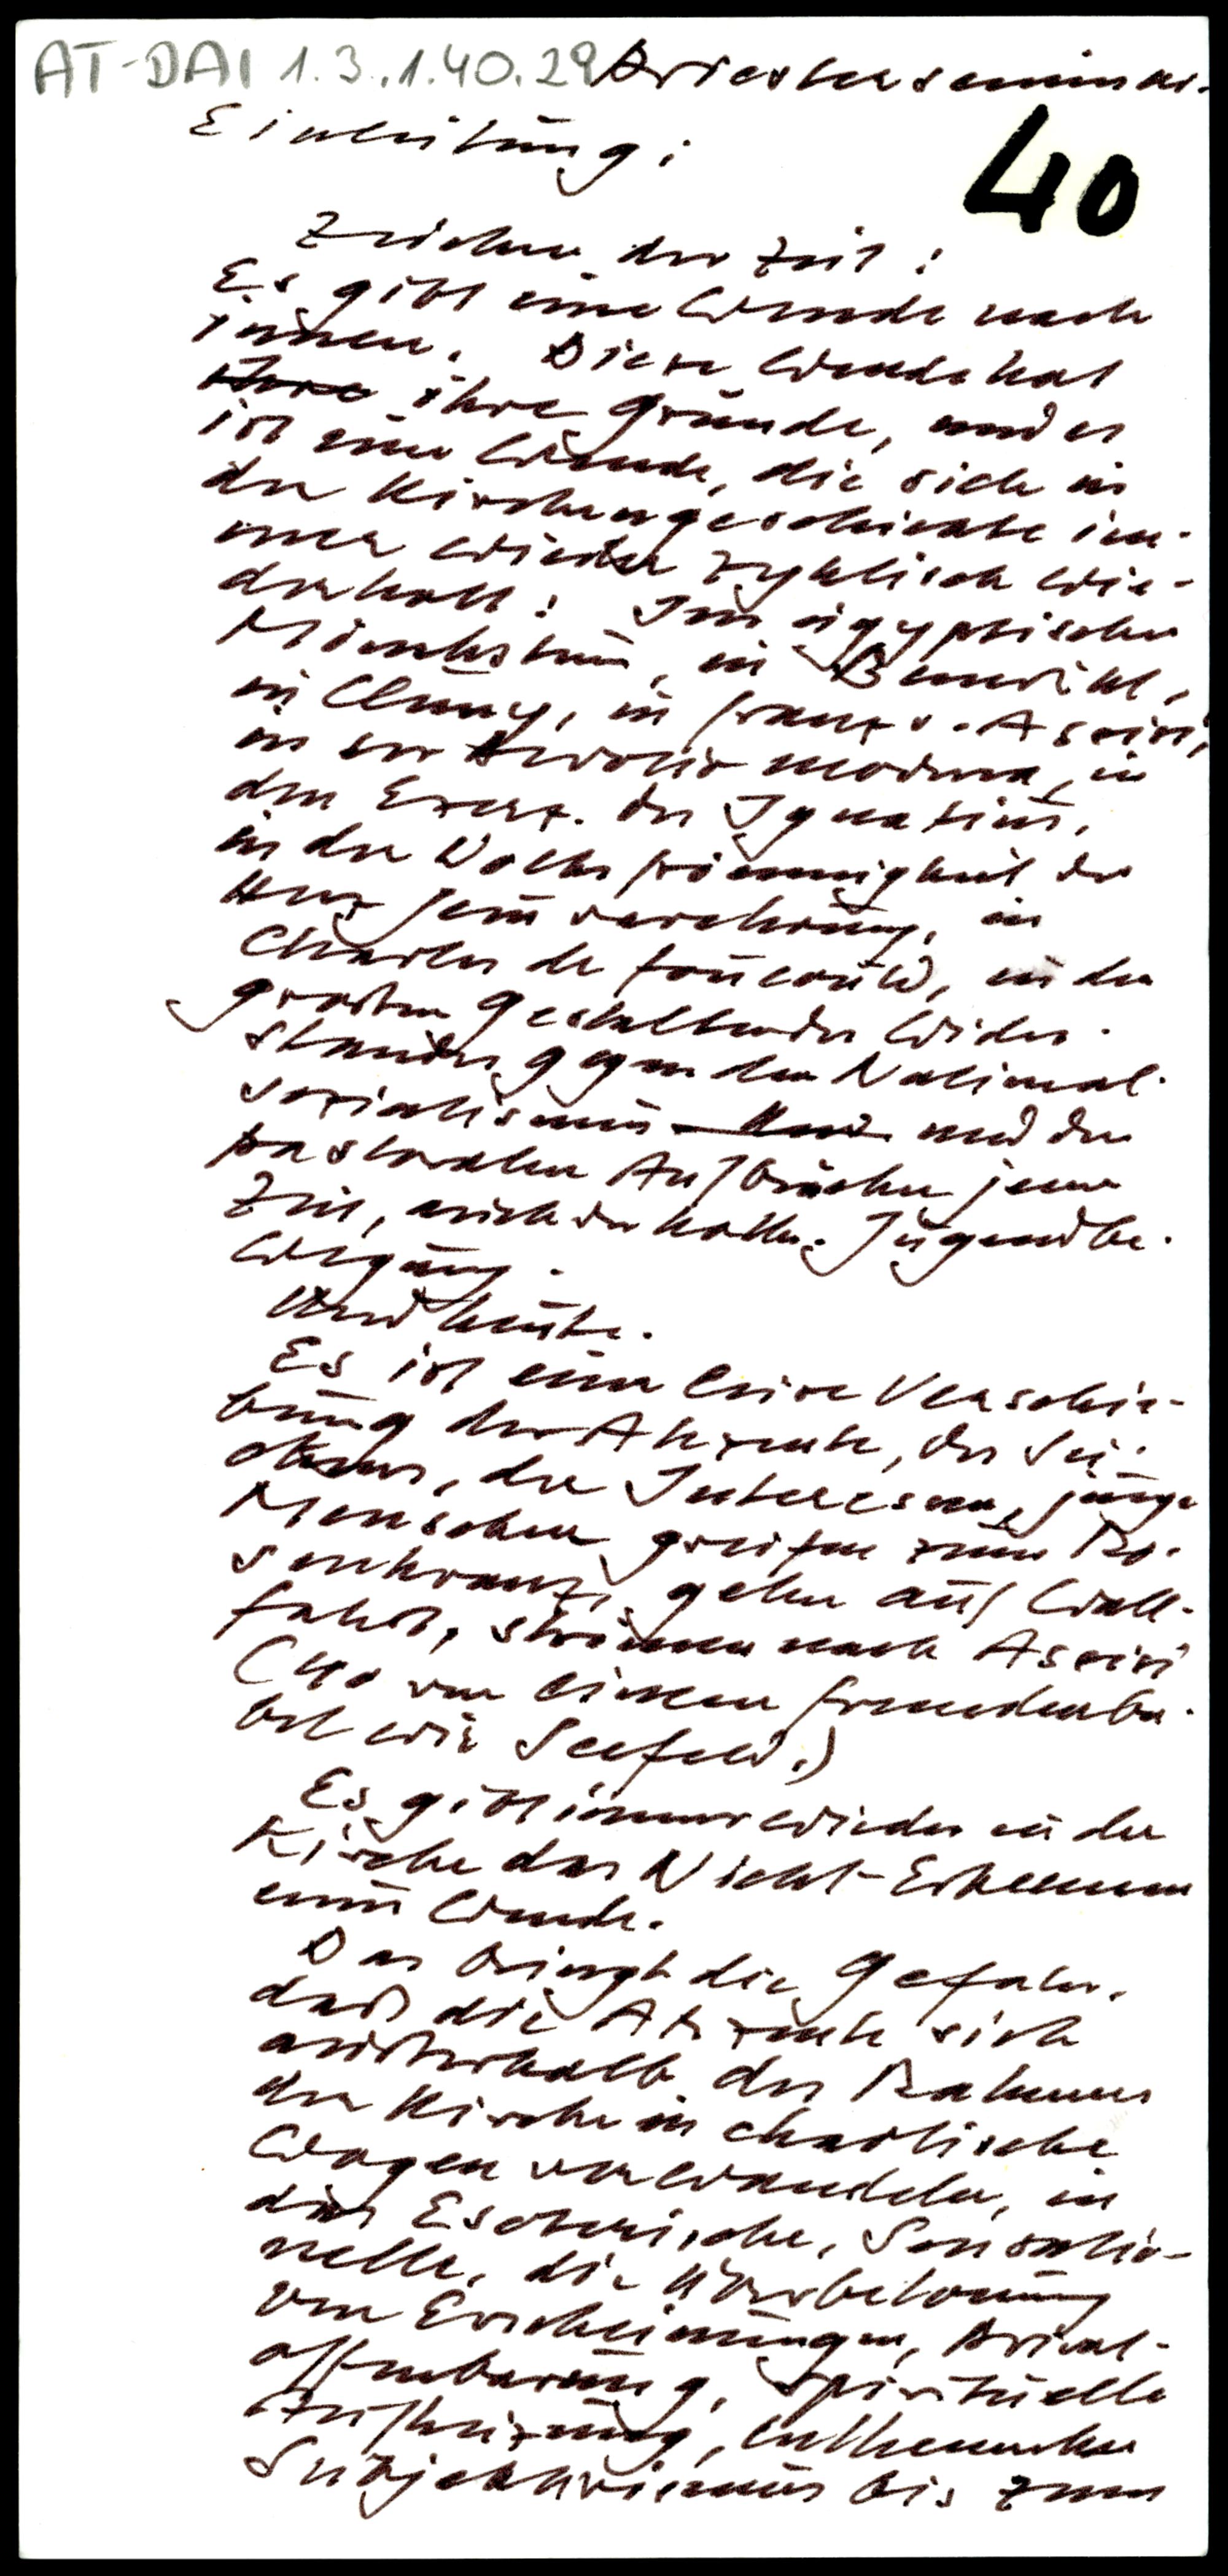 AT-DAI 1.3.1.40.29 Priesterseminar.
Einleitung:
40
Zeichen der Zeit:
Es gibt eine Wende nach
innen. Diese Wende hat
ihre ihre Gründe, und es
ist eine Wende, die sich in
der Kirchengeschichte im-
mer wieder zyklisch wie-
derholt: Im ägyptischen
Mönchstum, in Benedikt,
in Cluny, in Franz v. Assisi,
in der Devotio moderna, in
den Exerz. des Ignatius,
in der Volksfrömmigkeit der
Herz Jesu verehrung, in
Charles de Foucauld, in den
großen Gestalten des Wider-
standes gegen den National-
sozialismus und und den
pastoralen Aufbrüchen jener
Zeit, auch der kath. Jugendbe-
wegung.
Und heute.
Es ist eine leise Verschie-
bung der Akzente, des
der Interessen, junge
Menschen greifen zum Ro-
senkranz, gehen auf Wall-
fahrt, strömen nach Assisi
(40 von einem
wie Seefeld.)
Es gibt immer wieder in der
Kirche das Nicht-Erkennen
einer Wende.
Das bringt die Gefahr,
daß die Akzente sich
außerhalb des Rahmens
der Kirche in chaotische
Wogen verwandeln, in
das Esoterische, Sensatio-
nelle, die Überbetonung
von Erscheinungen, Privat-
offenbarung, spirituelle
Aufheizung,
Subjektivismus bis zum